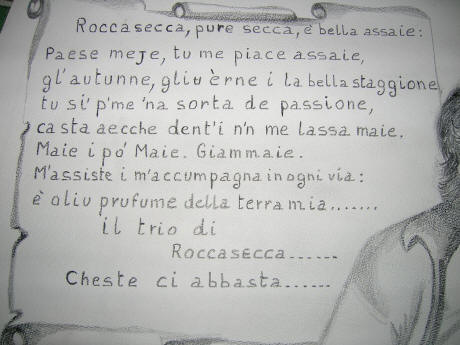 Roccasecca, pure secca, è bella assaie:
Paese meje, tu me piace assaie,
gl'autunne, gliu èrne i la bella staggione
tu si' p'me 'na sorta de passione,
ca sta aecche dent'i n'n me lassa maie.
Maie i pó Maie. Giammaie.
M'assiste i m'accumpagna in ogni via:
è oliu prufume della terra mia.......
il trio di
Roccasecca......
Cheste ci abbasta......